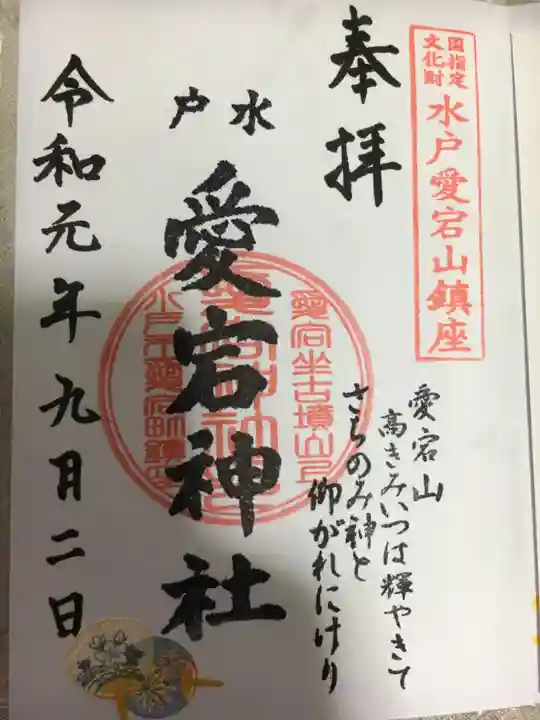 国指定
文化財
水戸愛宕山鎮座
奉拝
愛宕山
高きみいつは輝やきて
さちのみ神と
仰がれにけり
水戸
愛宕神社
愛宕坐古墳山上
愛宕神社
水戸市愛宕町鎮座
令和元年九月二日